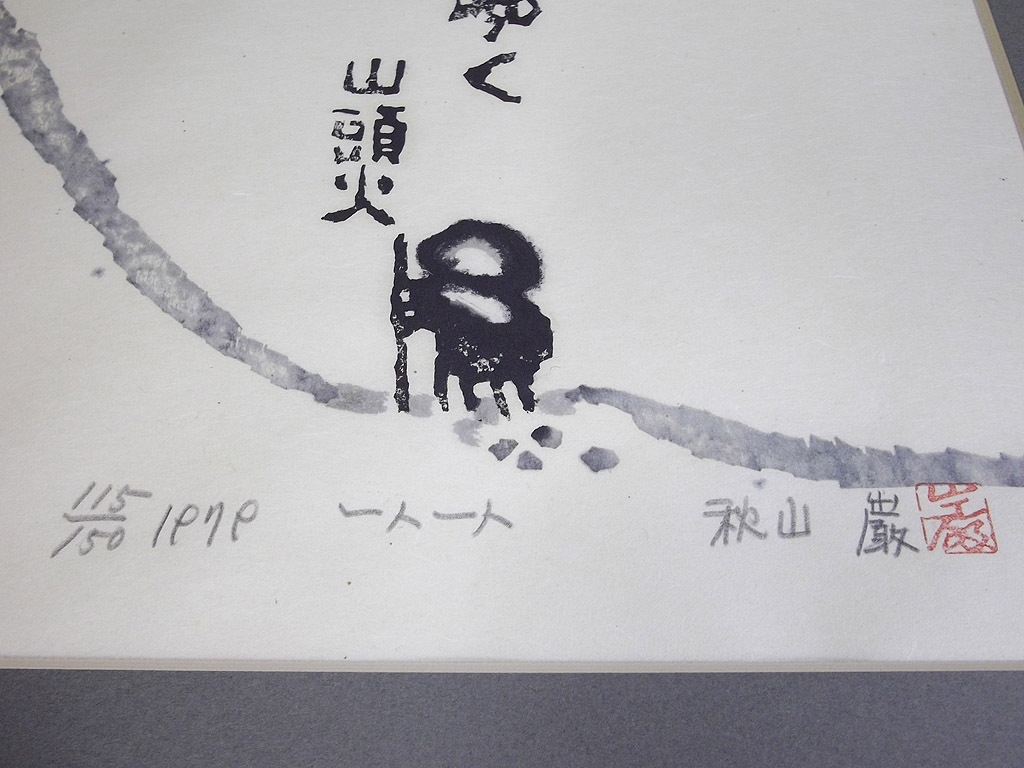 ゆく
山頭火
115/150 1979 一人一人 秋山 巌
巌